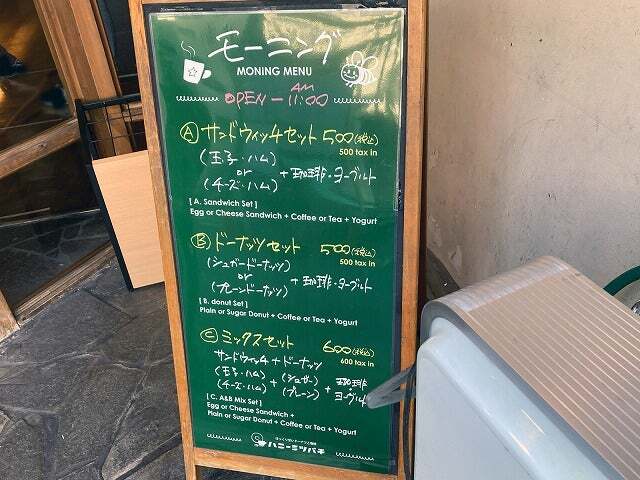 モーニング
MONING MENU
OPEN - AM 11:00
Ⓐ サンドウィッチセット 500(税込)
500 tax in
(玉子・ハム)
or + 珈琲・ヨーグルト
(チーズ・ハム)
[ A. Sandwich Set ]
Egg or Cheese Sandwich + Coffee or Tea + Yogurt
Ⓑ ドーナッツセット 500(税込)
500 tax in
(シュガードーナッツ)
or + 珈琲・ヨーグルト
(プレーンドーナッツ)
[ B. donut Set ]
Plain or Sugar Donut + Coffee or Tea + Yogurt
Ⓒ ミックスセット 600(税込)
600 tax in
サンドウィッチ + ドーナッツ
(玉子・ハム) + (シュガー) + 珈琲・
(チーズ・ハム) (プレーン) ヨーグルト
[ C. A&B Mix Set ]
Egg or Cheese Sandwich +
Plain or Sugar Donut + Coffee or Tea + Yogurt
ハニーミツバチ